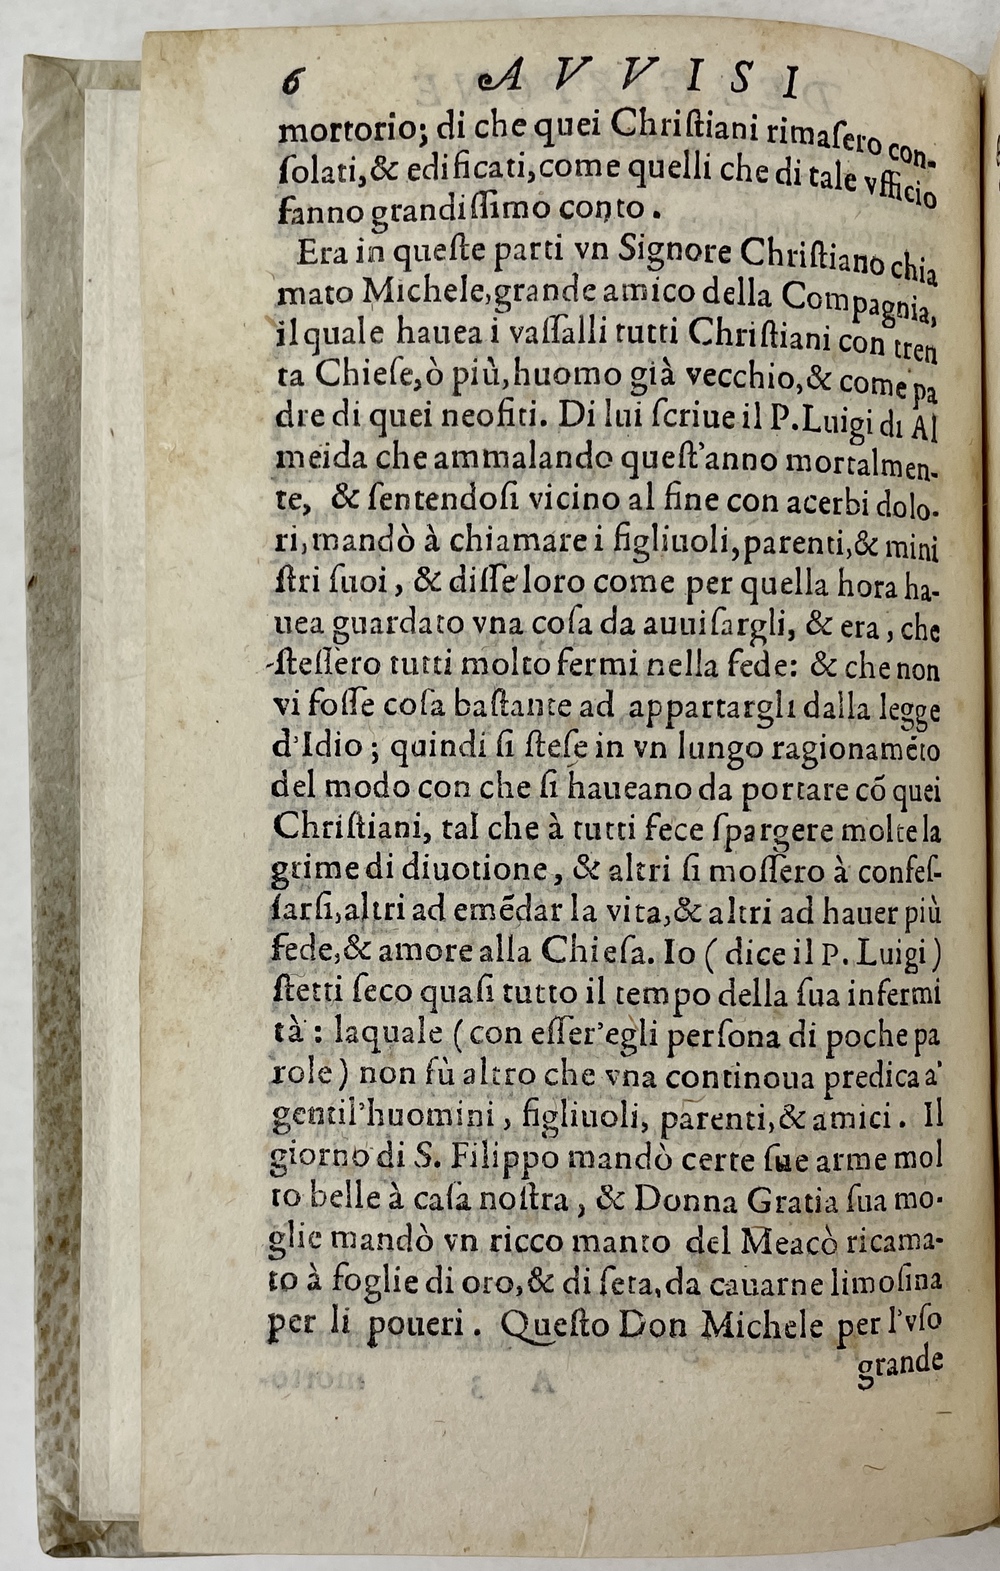 6 AVVISI
mortorio; di che quei Chriſtiani rimaſero con-
ſolati,& edificati,come quelli che di tale vfficio
fanno grandiſſimo conto.
Era in queſte parti vn Signore Chriſtiano chia
mato Michele,grande amico della Compagnia,
il quale hauea i vaſſalli tutti Chriſtiani con tren
ta Chieſe,ò più,huomo già vecchio,& come pa
dre di quei neofiti. Di lui ſcriue il P.Luigi di Al
meida che ammalando queſt'anno mortalmen-
te, & ſentendoſi vicino al fine con acerbi dolo-
ri,mandò à chiamare i figliuoli,parenti,& mini
ſtri ſuoi, & diſſe loro come per quella hora ha-
uea guardato vna coſa da auuiſargli, & era, che
ſteſſero tutti molto fermi nella fede: & che non
vi foſſe coſa baſtante ad appartargli dalla legge
d'Idio; quindi ſi ſteſe in vn lungo ragionamẽto
del modo con che ſi haueano da portare cõ quei
Chriſtiani, tal che à tutti fece ſpargere molte la
grime di diuotione, & altri ſi moſſero à confeſ-
ſarſi,altri ad emẽdar la vita,& altri ad hauer più
fede,& amore alla Chieſa. Io ( dice il P. Luigi )
ſtetti ſeco quaſi tutto il tempo della ſua infermi
tà : laquale ( con eſſer'egli perſona di poche pa
role ) non fù altro che vna continoua predica a'
gentil'huomini, figliuoli, parenti,& amici. Il
giorno di S. Filippo mandò certe ſue arme mol
to belle à caſa noſtra, & Donna Gratia ſua mo-
glie mandò vn ricco manto del Meacò ricama-
to à foglie di oro,& di ſeta,da cauarne limoſina
per li poueri. Queſto Don Michele per l'vſo
grande